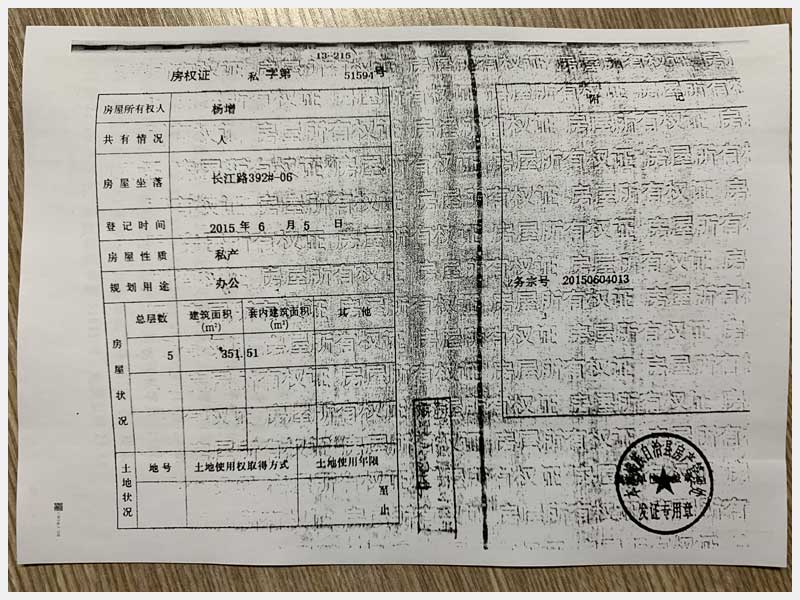 13-215
房权证 私 字第 51594 号
房屋所有权人 杨增
共有情况 人
房屋坐落 长江路392#-06
登记时间 2015 年 6 月 5 日
房屋性质 私产
规划用途 办公
房屋状况
总层数 建筑面积(m²) 套内建筑面积(m²) 其他
5 351.51
土地状况
地号 土地使用权取得方式 土地使用年限
至
止
附 记
务宗号 20150604013
自治县房产管理处
发证专用章